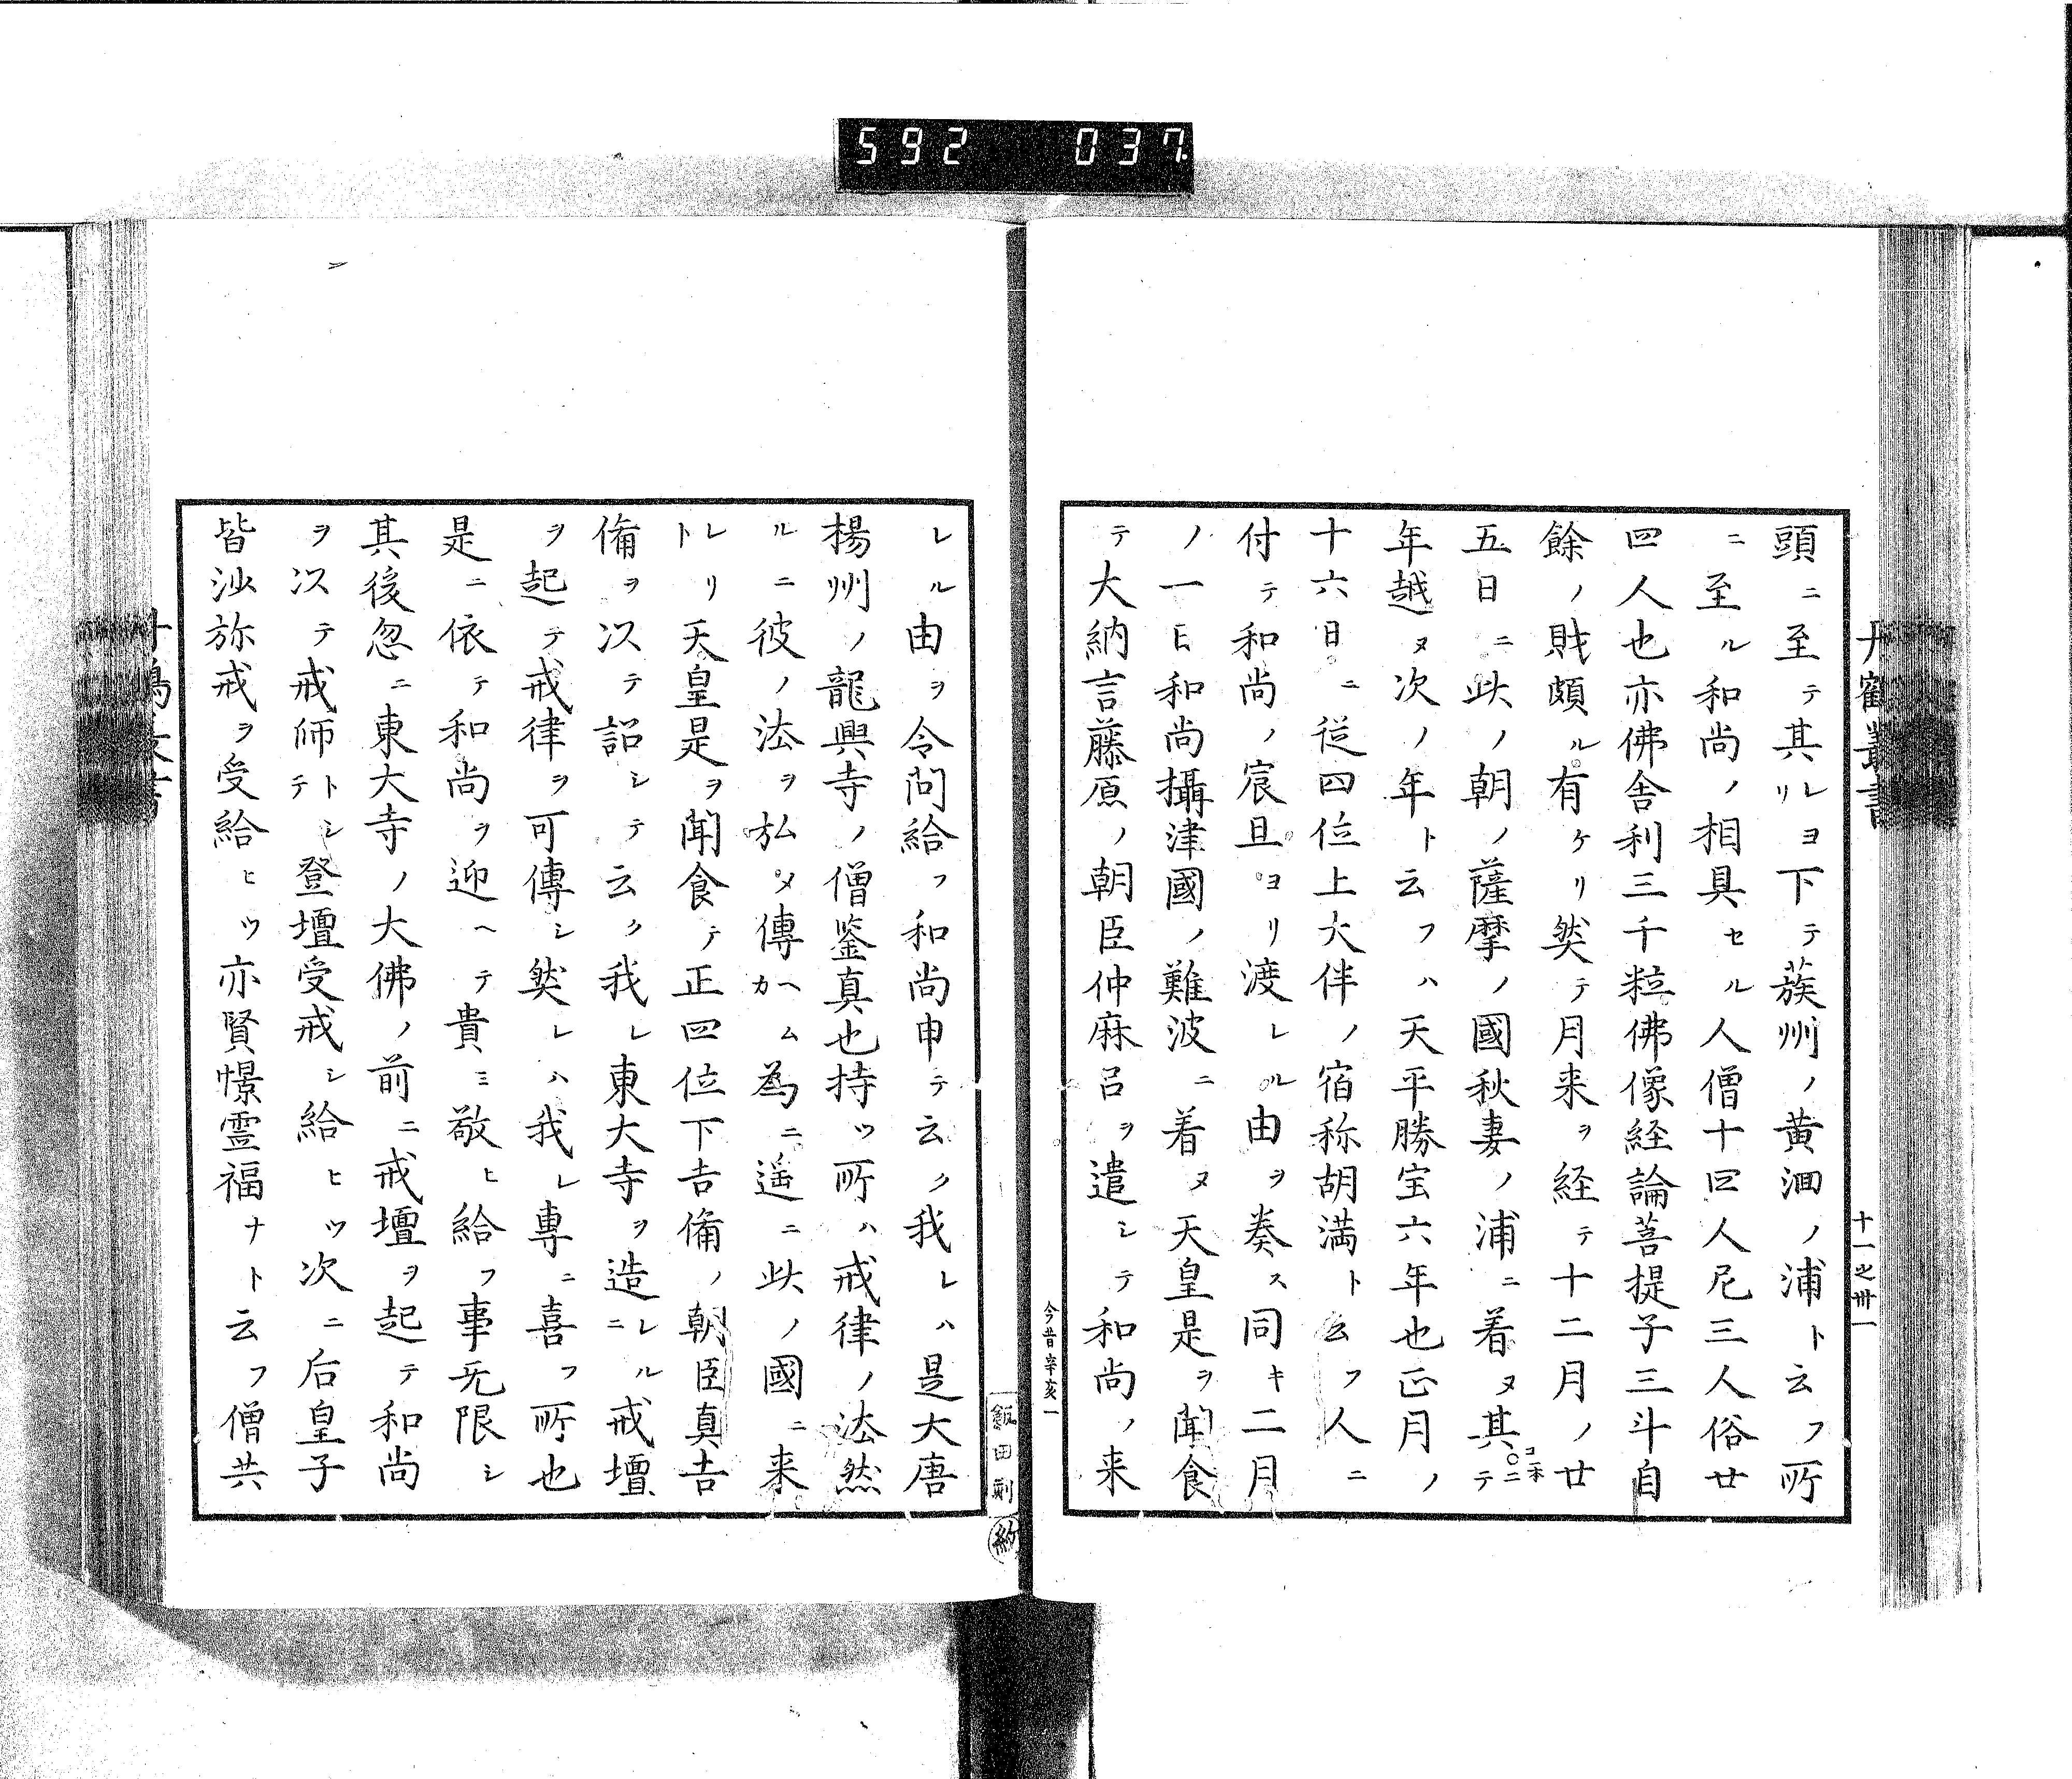 592 037
丹鶴叢書
十一之卅一
頭ニ至テ其レヨリ下テ蔟州ノ黄洄ノ浦ト云フ所
ニ至ル和尚ノ相具セル人僧十四人尼三人俗廿
四人也亦佛舎利三千粒佛像経論菩提子三斗自
餘ノ賎頗ル有ケリ然テ月来ヲ経テ十二月ノ廿
五日ニ此ノ朝ノ薩摩ノ國秋妻ノ浦ニ着ヌ其コニテ
年越ヌ次ノ年ト云フハ天平勝宝六年也正月ノ
十六日ニ従四位上大伴ノ宿祢胡満ト云フ人ニ
付テ和尚ノ宸旦ヨリ渡レル由ヲ奏ス同キ二月
ノ一日和尚攝津國ノ難波ニ着ヌ天皇是ヲ聞食
テ大納言藤原ノ朝臣仲麻呂ヲ遣シテ和尚ノ来
今昔辛亥一
飯田剛
約
レル由ヲ令問給フ和尚申テ云ク我レハ是大唐
楊州ノ龍興寺ノ僧鑒真也持ツ所ハ戒律ノ法然
ルニ彼ノ法ヲ弘メ傳ヘムカ為ニ遥ニ此ノ國ニ来
レリト天皇是ヲ聞食テ正四位下吉備ノ朝臣真吉
備ヲ以テ詔シテ云ク我レ東大寺ヲ造レルニ戒壇
ヲ起テ戒律ヲ可傳シ然レハ我レ專ニ喜フ所也
是ニ依テ和尚ヲ迎ヘテ貴ミ敬ヒ給フ事无限シ
其後忽ニ東大寺ノ大佛ノ前ニ戒壇ヲ起テ和尚
ヲ以テ戒師トシテ登壇受戒シ給ヒツ次ニ后皇子
皆沙弥戒ヲ受給ヒツ亦賢憬霊福ナト云フ僧共